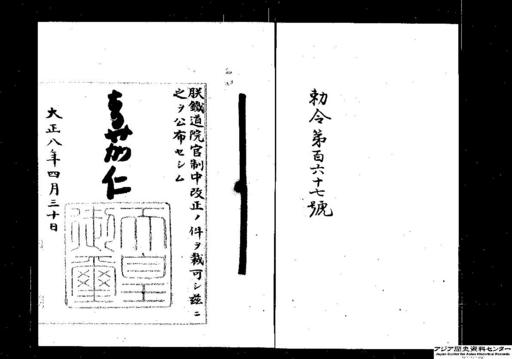 勅令第百六十七號
朕鐵道院官制中改正ノ件ヲ裁可シ茲ニ
之ヲ公布セシム
嘉仁
天皇御璽
大正八年四月三十日
アジア歴史資料センター
Japan Center for Asian Historical Records